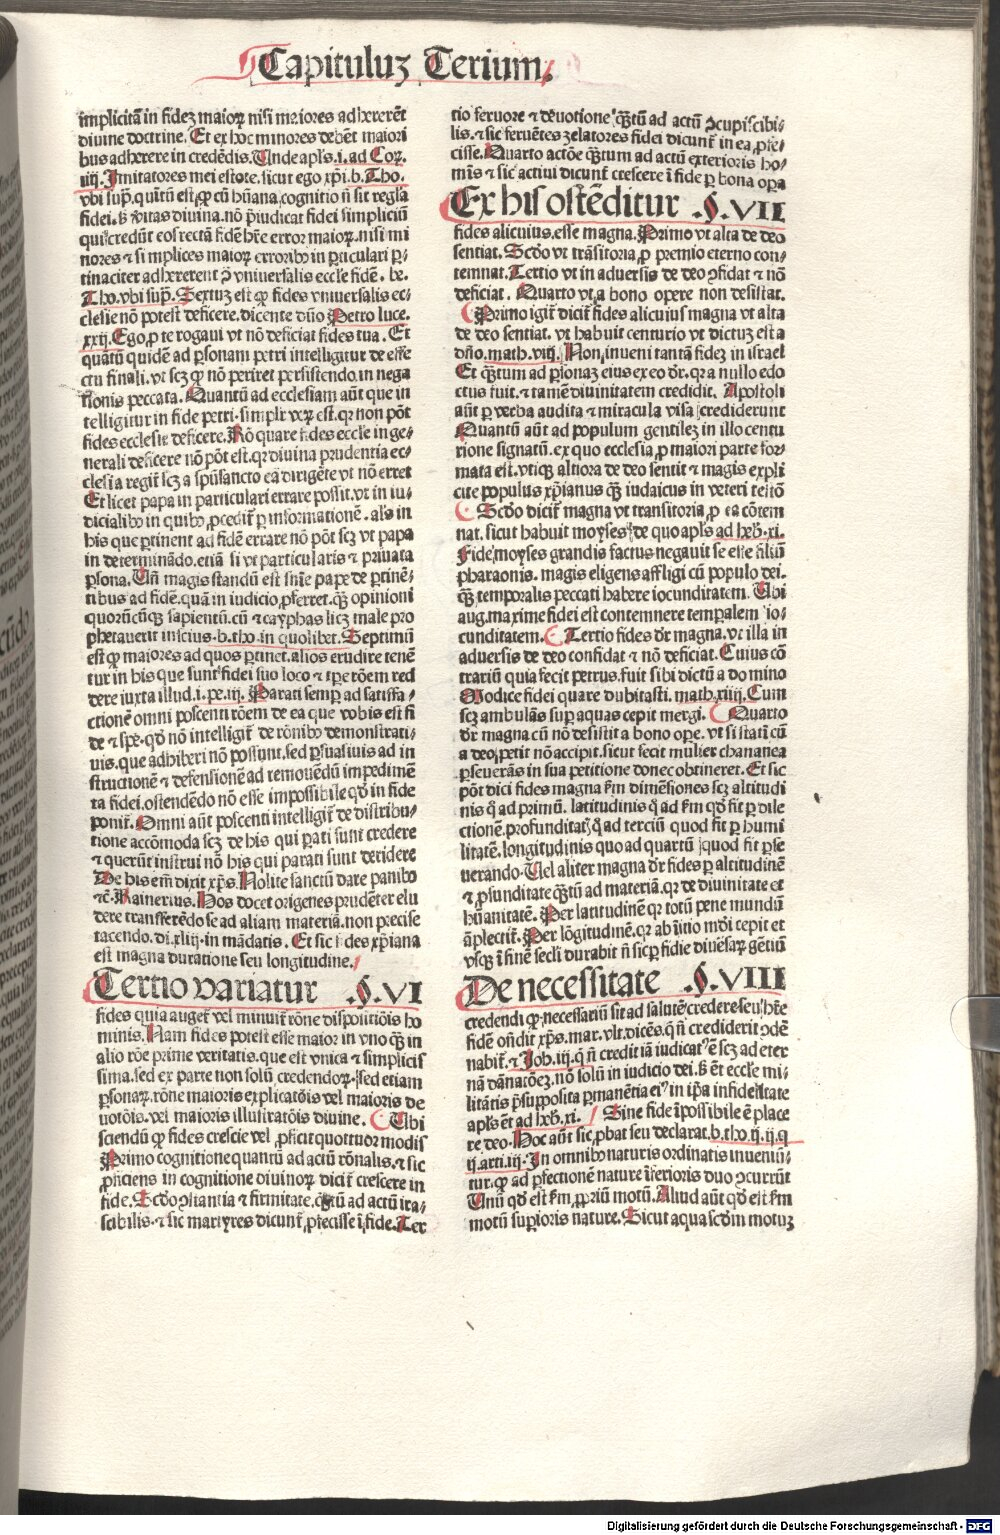 Capituluz Terium.
implicitā in fidez maioꝝ nisi maiores adhererēt
diuine doctrine. Et ex hoc minores debēt maiori
bus adherere in credēdis. Unde apl̄s .i. ad Coꝝ.
iiij. Imitatores mei estote. sicut ego xp̄i. b. Tho.
vbi sup̄. quintū est ꝙ cū hūana cognitio n̄ sit regla
fidei. sꝫ v̄itas diuina. nō p̄iudicat fidei simpliciū
qui credūt eos rectā fidē hr̄e error maioꝝ. nisi mi
nores ⁊ simplices maioꝝ erroribꝰ in ꝑticulari ꝑ-
tinaciter adhererent ꝯ̄ vniuersalis eccl̄e fidē. hec
Tho. vbi sup̄. Sextuz est ꝙ fides vniuersalis ec-
clesie nō potest deficere. dicente dn̄o Petro luce.
xxij. Ego ꝓ te rogaui vt nō deficiat fides tua. Et
quātū quidē ad ꝑsonam petri intelligitur de effe
ctu finali. vt scꝫ ꝙ nō periret persistendo in nega
tionis peccata. Quantū ad ecclesiam aūt que in
telligitur in fide petri. simplr̄ veꝝ est. qꝛ non pōt
fides ecclesie deficere. Rō quare fides eccl̄e in ge-
nerali deficere nō pōt est. qꝛ diuina prudentia ec-
clesia regit̄ scꝫ a spūsancto eā dirigēte vt nō erret
Et licet papa in particulari errare possit. vt in iu-
dicialibꝰ in quibꝰ ꝓcedit̄ ꝑ informationē. als̄ in
his que ꝑtinent ad fidē errare nō pōt scꝫ vt papa
in determinādo. etiā si vt particularis ⁊ priuata
ꝑsona. Un̄ magis standū est sn̄ie pape de ꝑtinē-
tibus ad fidē. quā in iudicio ꝓferret. ꝙ̄ opinioni
quorūcūqꝫ sapientū. cū ⁊ cayphas licꝫ male pro
phetauerit inscius. b. tho. in quolibet. Septimū
est ꝙ maiores ad quos ꝑtinet. alios erudire tenē
tur in his que sunt fidei suo loco ⁊ tꝑe rōem red
dere iuxta illud .i. pe. iij. Parati semꝑ ad satisfa-
ctionē omni poscenti rōem de ea que vobis est fi
de ⁊ spe. qd̄ nō intelligit̄ de rōnibꝰ demonstrati-
uis. que adhiberi nō possunt. sed ꝑsuasiuis ad in
structionē ⁊ defensionē ad remouēdū impedimē
ta fidei. ostendēdo nō esse impossibile qd̄ in fide
ponit̄. Omni aūt poscenti intelligit̄ de distribu-
tione accōmoda scꝫ de his qui ꝑati sunt credere
⁊ querūt instrui nō his qui parati sunt deridere
De his em̄ dixit xp̄s. Nolite sanctū dare canibꝰ
⁊c̄. Rainerius. Nos docet origenes prudēter elu
dere transferēdo se ad aliam materiā. non precise
tacendo. di. xliij. in mādatis. Et sic fides xp̄iana
est magna duratione seu longitudine.
Tertio variatur .§. VI
fides quia auget̄ vel minuit̄ rōne dispositiōis ho
minis. Nam fides potest esse maior in vno qꝫ in
alio rōe prime veritatis. que est vnica ⁊ simplicis
sima. sed ex parte non solū credendoꝝ. sed etiam
ꝑsonaꝝ. rōne maioris explicatōis vel maioris de
uotōis. vel maioris illustratōis diuine. Ubi
sciendū ꝙ fides crescit vel ꝓficit quottuor modis
Primo cognitione quantū ad actū rōnalis. ⁊ sic
ꝓficiens in cognitione diuinoꝝ dicit̄ crescere in
fide. Scd̄o ꝯstantia ⁊ firmitate. qꝫtū ad actū ira-
scibilis. ⁊ sic martyres dicunt̄ ꝓfecisse ī fide. Ter
tio feruore ⁊ deuotione qꝫtū ad actū ꝯcupiscibi-
lis. ⁊ sic feruētes zelatores fidei dicunt̄ in ea ꝓfe-
cisse. Quarto actōe qꝫtum ad actū exterioris ho-
mīs ⁊ sic actiui dicunt̄ crescere ī fide ꝑ bona oꝑa
Ex his ostēditur .§. VII
fides alicuius. esse magna. Primo vt alta de deo
sentiat. Scd̄o vt trāsitoria ꝓ premio eterno con-
temnat. Tertio vt in aduersis de deo ꝯfidat ⁊ nō
deficiat. Quarto vt a bono opere non desistat.
Primo igit̄ dicit̄ fides alicuius magna vt alta
de deo sentiat. vt habuit centurio vt dictuz est a
dn̄o. math. viij. Non inueni tantā fidez in israel
Et qꝫtum ad ꝑsonaz eius ex eo dr̄. qꝛ a nullo edo
ctus fuit. ⁊ tamē diuinitatem credidit. Apostoli
aūt ꝑ verba audita ⁊ miracula visa crediderunt
Quantū aūt ad populum gentilez in illo centu
rione signatū. ex quo ecclesia ꝓ maiori parte for-
mata est. vtiqꝫ altiora de deo sentit ⁊ magis expli
cite populus xp̄ianus qꝫ iudaicus in veteri testō
Scd̄o dicit̄ magna vt transitoria ꝓ ea cōtem
nat. sicut habuit moyses de quo apl̄s ad heb̄. xi.
Fide moyses grandis factus negauit se esse filiū
pharaonis. magis eligens affligi cū populo dei.
qꝫ temporalis peccati habere iocunditatem. Ubi
aug. maxime fidei est contemnere temꝑalem io-
cunditatem. Tertio fides dr̄ magna. vt illa in
aduersis de deo confidat ⁊ nō deficiat. Cuius cō
trariū quia fecit petrus. fuit sibi dictū a domino
Modice fidei quare dubitasti. math. xiiij. Cum
scꝫ ambulās suꝑ aquas cepit mergi. Quarto
dr̄ magna cū nō desistit a bono oꝑe. vt si statī cū
a deo petit nō accipit. sicut fecit mulier chananea
ꝑseuerās in sua petitione donec obtineret. Et sic
pōt dici fides magna s̄m dimēsiones scꝫ altitudi
nis qͦ ad primū. latitudinis qͦ ad s̄m qd̄ fit ꝑ dile
ctionē. profunditatꝭ qͦ ad terciū quod fit ꝑ humi
litatē. longitudinis quo ad quartū quod fit ꝑse
uerando. Uel aliter magna dr̄ fides ꝑ altitudinē
⁊ ꝓfunditate qꝫtū ad materiā. qꝛ de diuinitate et
hūanitatē. Per latitudinē qꝛ totū pene mundū
āplectit̄. Per lōgitudinē. qꝛ ab initio mūdi cepit et
vsqꝫ ī finē secl̄i durabit n̄ sic ꝑfidie diuesaꝝ gētiū
De necessitate .§. VIII
credendi ꝙ necessariū sit ad salutē credere seu hr̄e
fidē on̄dit xp̄s. mar. vlt. dicēs. q̄ n̄ crediderit ꝯdē
nabit̄. ⁊ Joh. iij. q̄ n̄ credit iā iudicatꝰ ē scꝫ ad eter
nā dānatōeꝫ. nō solū in iudicio dei. sꝫ et̄ eccl̄e mi-
litātis p̄supposita ꝑmanētia eiꝰ in ip̄a infidelitate
apl̄s et̄ ad heb̄. xi. Sine fide īpossibile ē place
re deo. Hoc aūt sic ꝓbat̄ seu declarat̄. b. tho. ij. ij. q.
ij. arti. iij. In omnibꝰ naturis ordinatis inueniū-
tur. ꝙ ad ꝑfectionē nature īferioris duo ꝯcurrūt
Unū qd̄ est s̄m ꝓpriū motū. Aliud aūt qd̄ est s̄m
motū suꝑioris nature. Sicut aqua scd̄m motuz
Digitalisierung gefördert durch die Deutsche Forschungsgemeinschaft - DFG